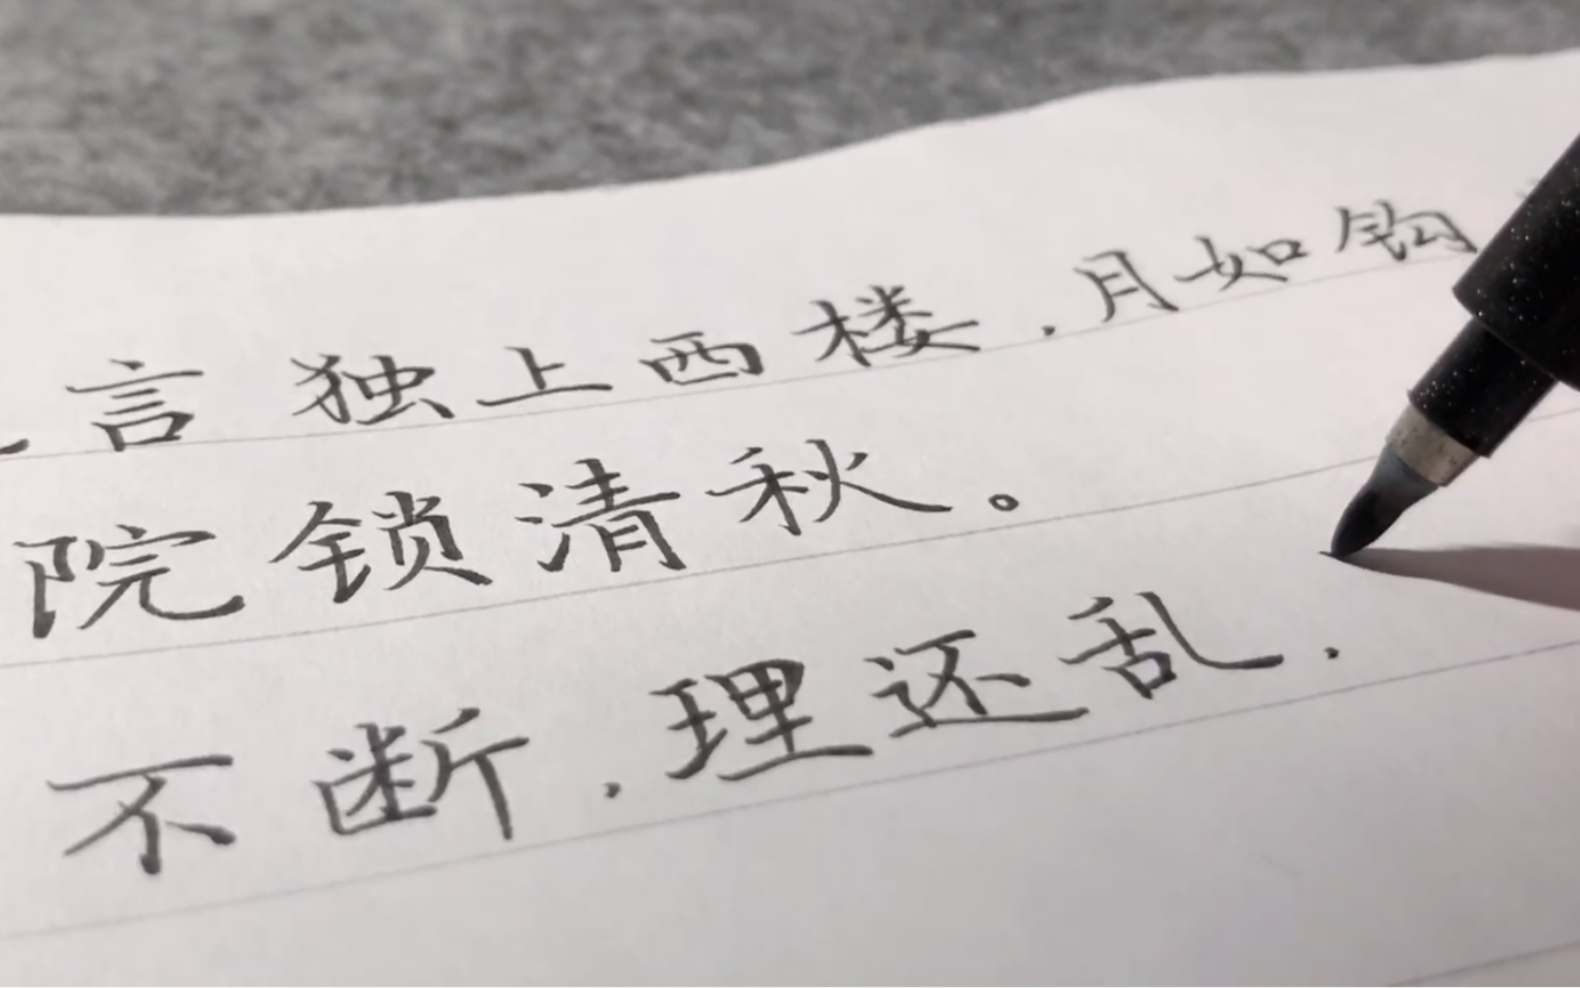 言独上西楼，月如钩
院锁清秋。
不断，理还乱，